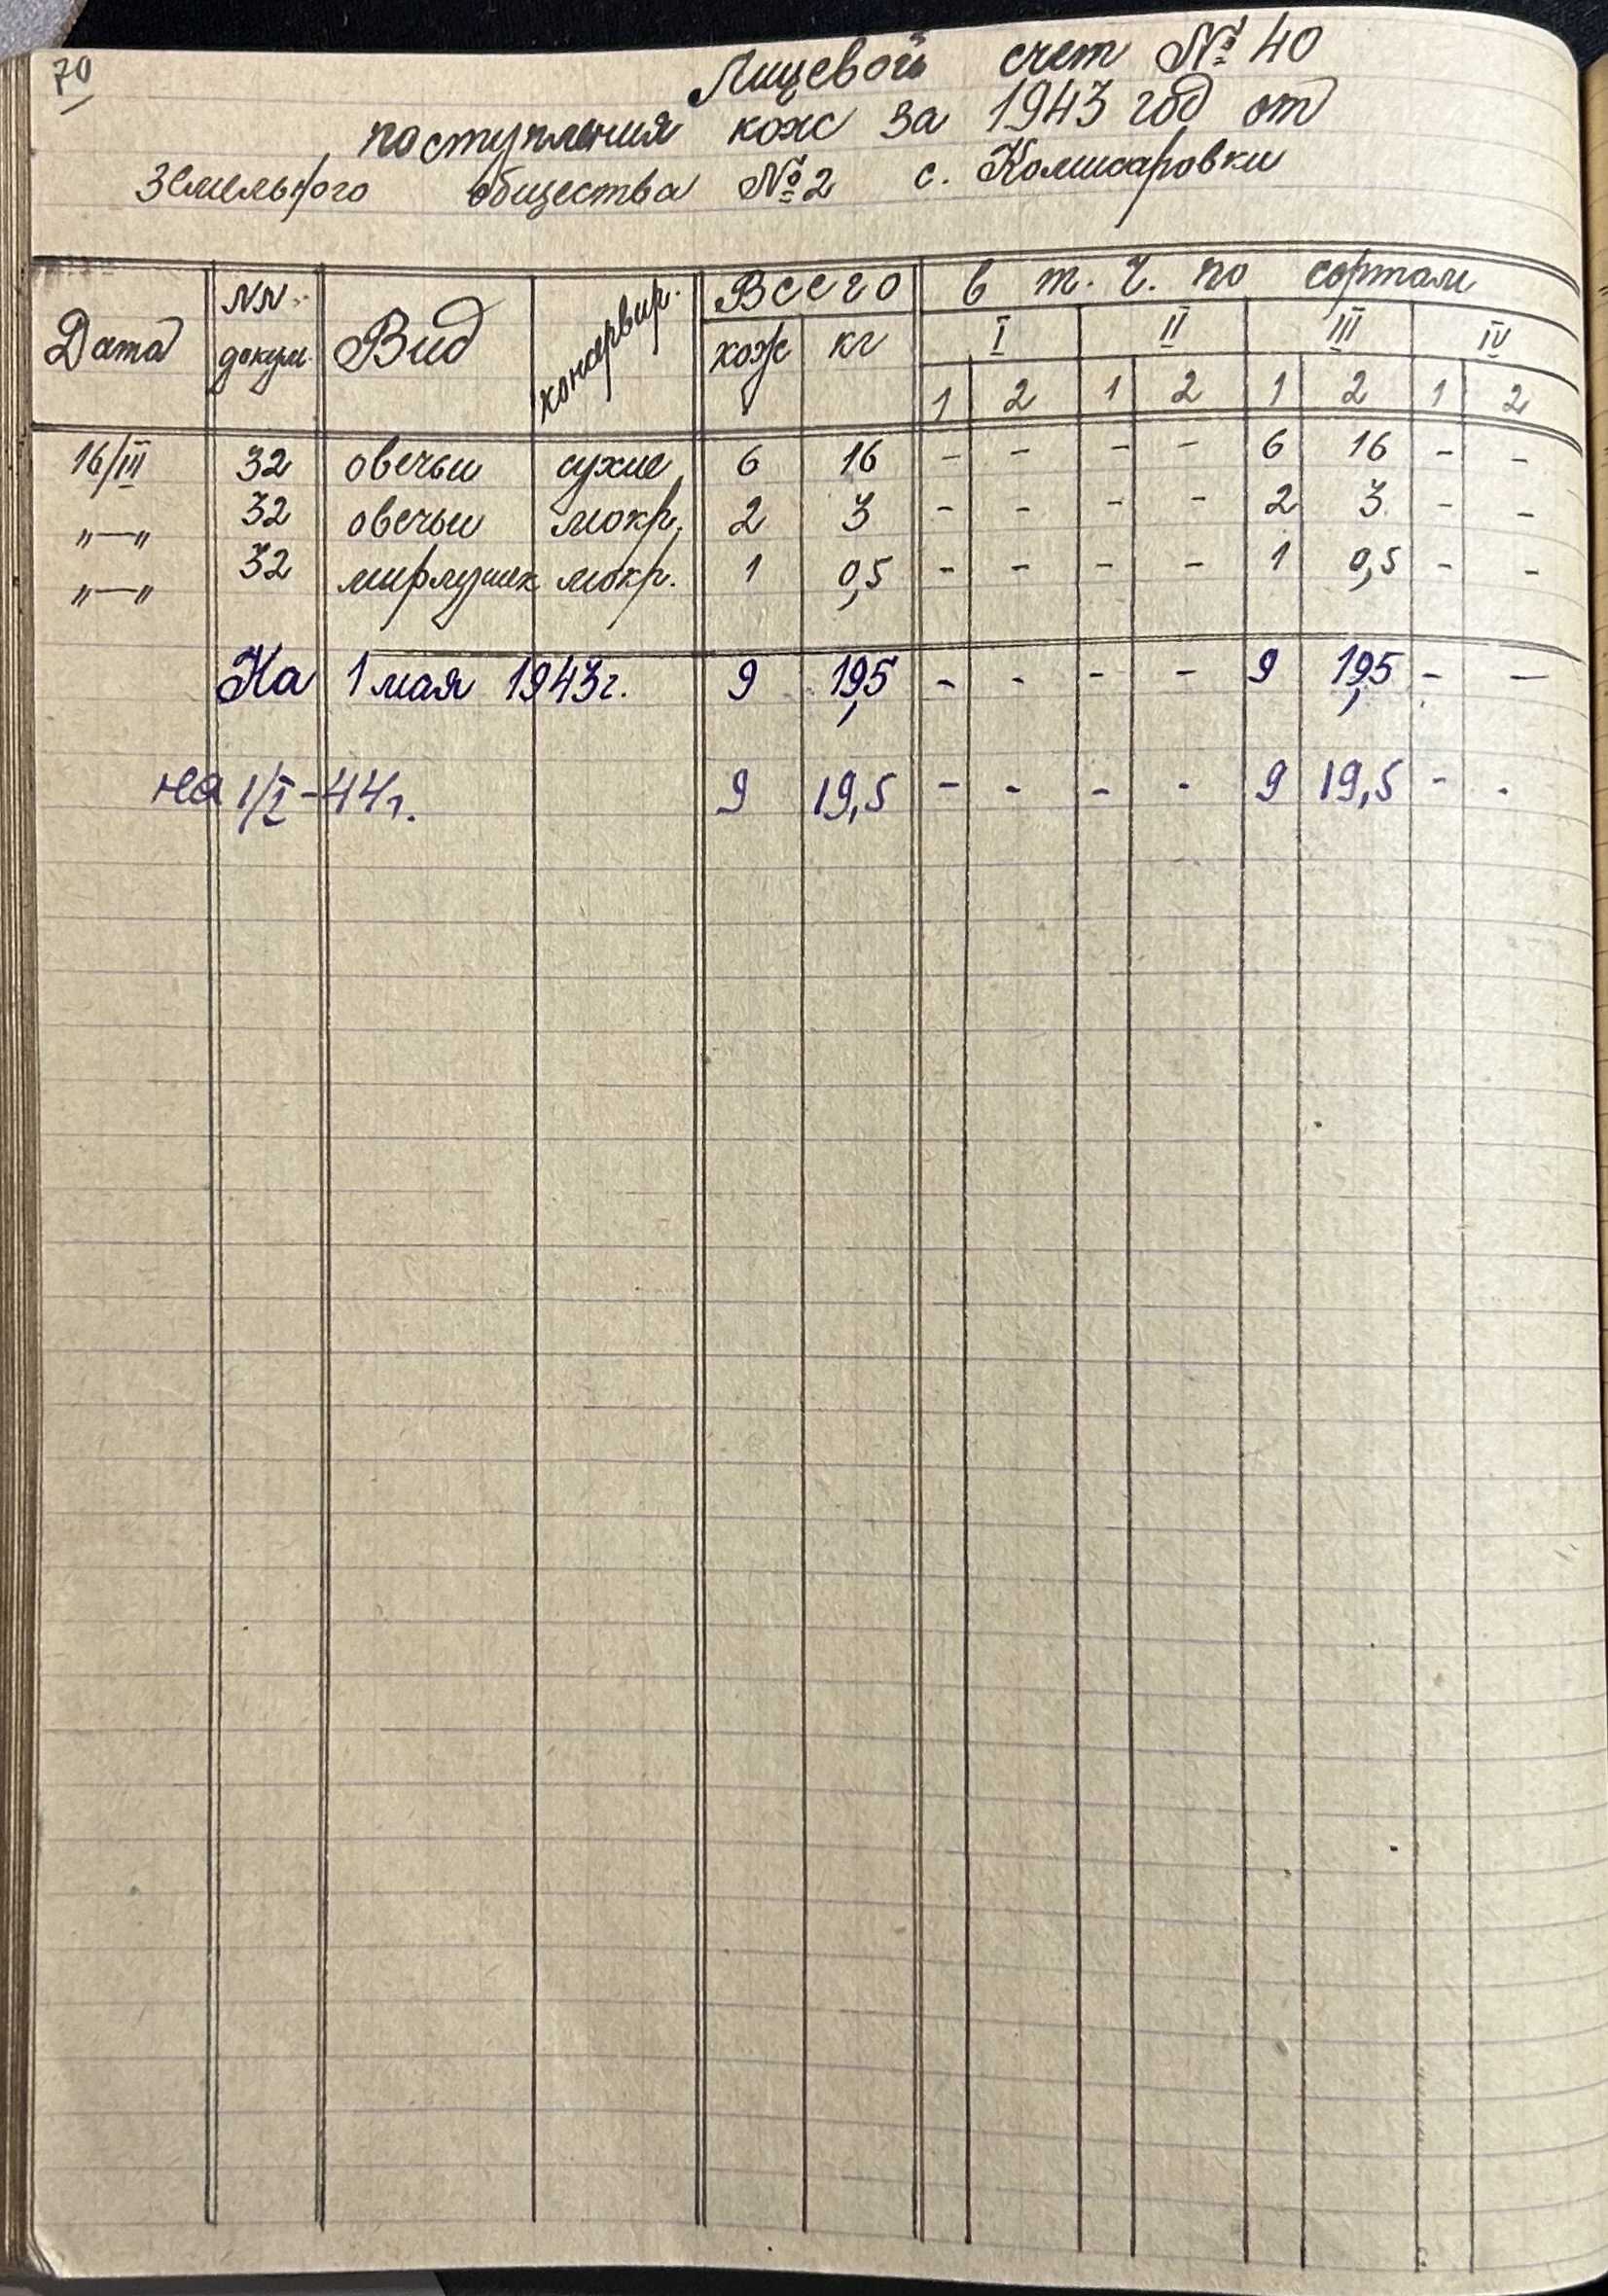 70
Лицевой счет № 40
поступления кож за 1943 год от
Земельного общества № 2 с. Комисаровки
Дата №№ докум. Вид консервир. Всего в т. ч. по сортам
кож кг I II III IV
1 2 1 2 1 2 1 2
16/III 32 овечьи сухие 6 16 - - - - 6 16 - -
"—" 32 овечьи мокр. 2 3 - - - - 2 3 - -
"—" 32 мирлушек мокр. 1 0,5 - - - - 1 0,5 - -
На 1 мая 1943 г. 9 19,5 - - - - 9 19,5 - —
на 1/I-44 г. 9 19,5 - - - - 9 19,5 - -